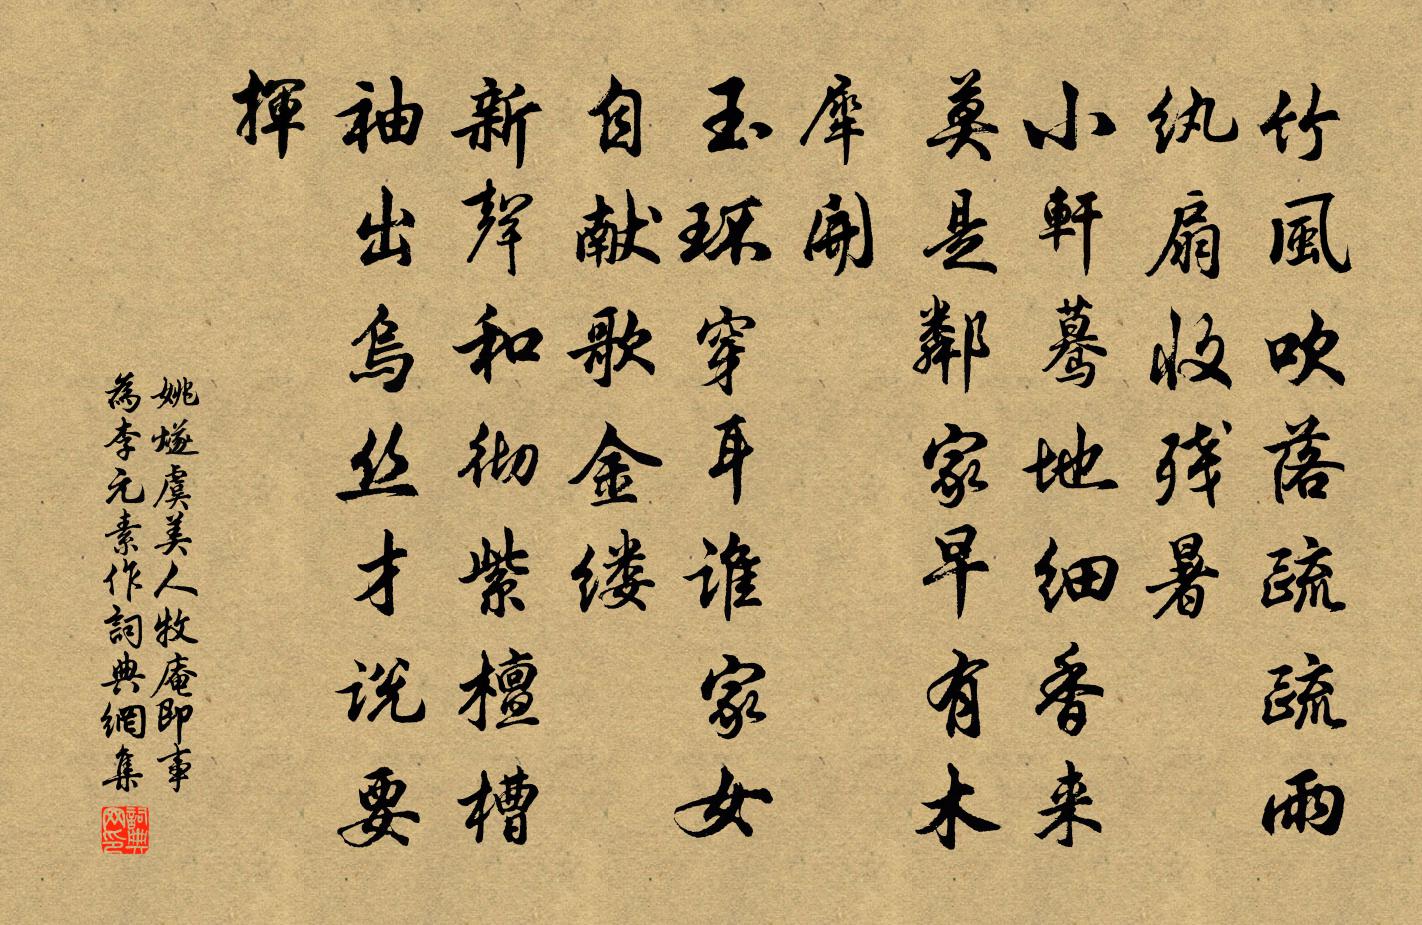 竹風吹落疏疏雨
纨扇收残暑
小軒驀地细香来
莫是鄰家早有木
犀開
玉环穿耳谁家女
自献歌金缕
新聲和彻紫檀槽
袖出烏丝才说要
揮
姚燧虞美人牧庵即事
為李元素作詞典網集
詞典
网印